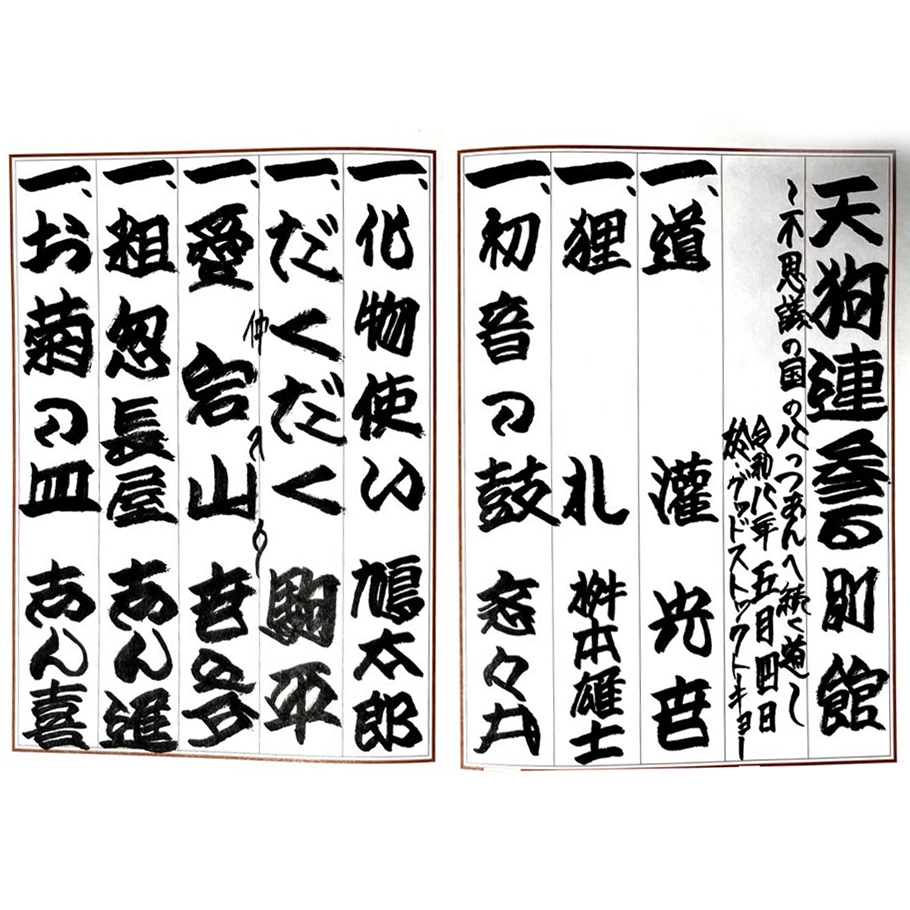 天狗連参百別館
～不思議の国の八っつあんへ続く道し
令和八年五月四日
於:グッドストックトーキョー
一、道灌 光音
一、狸 札 桝本雄士
一、初音の鼓 恋々井
一、化物使い 鳩太郎
一、だくだく 駒平
仲入り
一、愛宕山 吉多
一、粗忽長屋 あん進
一、お菊の皿 あん喜